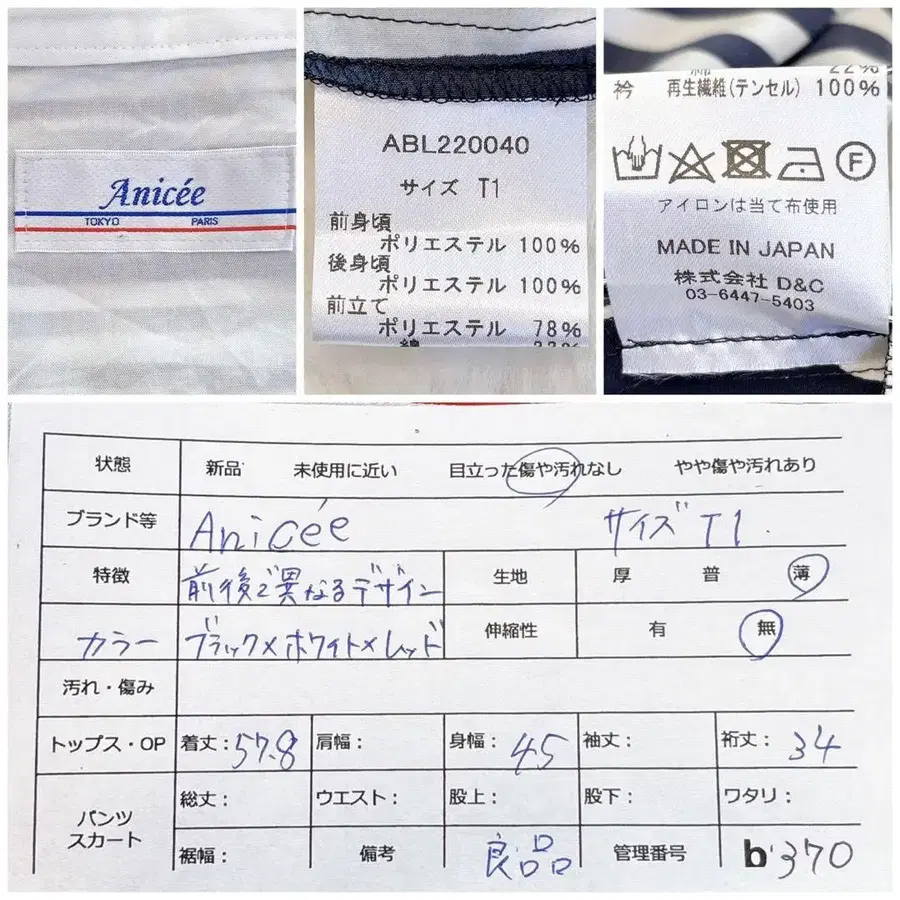 Anicée
TOKYO PARIS
ABL220040
サイズ T1
前身頃
ポリエステル 100%
後身頃
ポリエステル 100%
前立て
ポリエステル 78%
綿 22%
綿 22%
衿 再生繊維(テンセル) 100%
F
アイロンは当て布使用
MADE IN JAPAN
株式会社 D&C
03-6447-5403
状態 新品 未使用に近い 目立った傷や汚れなし やや傷や汚れあり
ブランド等 Anicée サイズ T1.
特徴 前後で異なるデザイン 生地 厚 普 薄
カラー ブラック×ホワイト×レッド 伸縮性 有 無
汚れ・傷み
トップス・OP 着丈：57.8 肩幅： 身幅：45 袖丈： 裄丈：34
パンツ スカート 総丈： ウエスト： 股上： 股下： ワタリ：
裾幅： 備考 良品 管理番号 b370